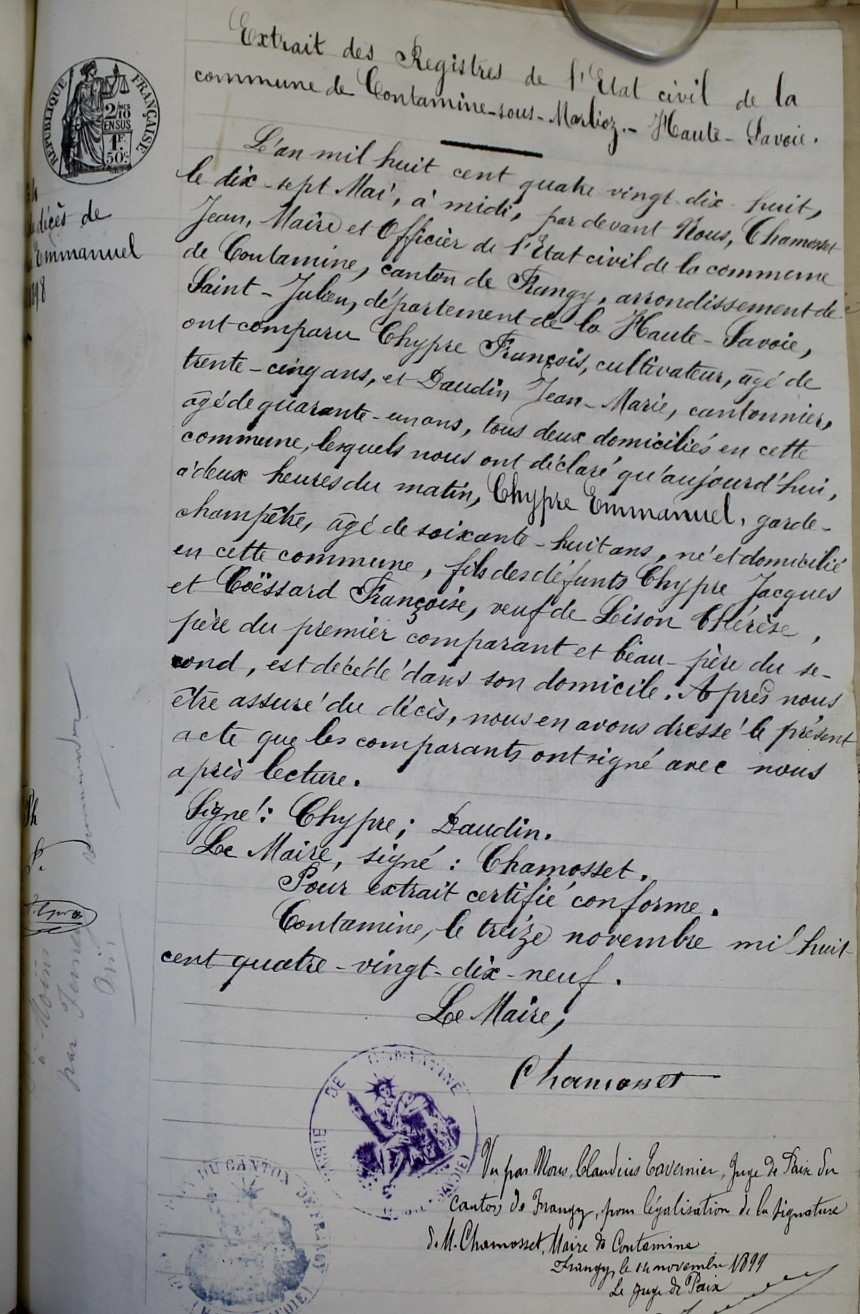 Extrait des Registres de l'Etat civil de la
commune de Contamine-sous-Marlioz.- Haute-Savoie.
RÉPUBLIQUE FRANÇAISE
2/10 EN SUS
1F 50c
L'an mil huit cent quatre vingt-dix-huit,
le dix-sept Mai, à midi, par devant Nous, Chamosset
Jean, Maire et Officier de l'Etat civil de la commune
de Contamine, canton de Frangy, arrondissement de
Saint-Julien, département de la Haute-Savoie,
ont comparu Chypre François, cultivateur, âgé de
trente-cinq ans, et Daudin Jean-Marie, cantonnier,
âgé de quarante-un ans, tous deux domiciliés en cette
commune, lesquels nous ont déclaré qu'aujourd'hui,
à deux heures du matin, Chypre Emmanuel, garde-
champêtre, âgé de soixante-huit ans, né et domicilié
en cette commune, fils des défunts Chypre Jacques
et Coëssard Françoise, veuf de Lison Thérèse,
père du premier comparant et beau-père du se-
cond, est décédé dans son domicile. Après nous
être assuré du décès, nous en avons dressé le présent
acte que les comparants ont signé avec nous
après lecture.
Signé: Chypre; Daudin.
Le Maire, signé: Chamosset.
Pour extrait certifié conforme.
Contamine, le treize novembre mil huit
cent quatre-vingt-dix-neuf.
Le Maire,
Chamosset
décès de
Emmanuel
MAIRIE DE CONTAMINE
DU CANTON DE FRANGY
Vu par Nous, Claudius Tavernier, Juge de Paix du
canton de Frangy, pour légalisation de la signature
de M. Chamosset, Maire de Contamine
Frangy, le 14 novembre 1899
Le juge de Paix